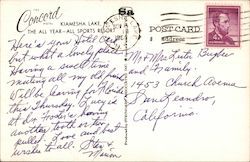 The
Concord
HOTEL
KIAMESHA LAKE,
THE ALL YEAR - ALL SPORTS RESORT
POST CARD
Address
Here's your Post Card
but what a lovely place.
Having a swell time
meeting all my old friends
Will be leaving for Florida
this Thursday. Lucy is
at Dr. having
another tooth or two
pulled. Love and best
wishes to all.
Mr & Mrs Lester
and Family
1453 Church Avenue
San Leandro,
California.